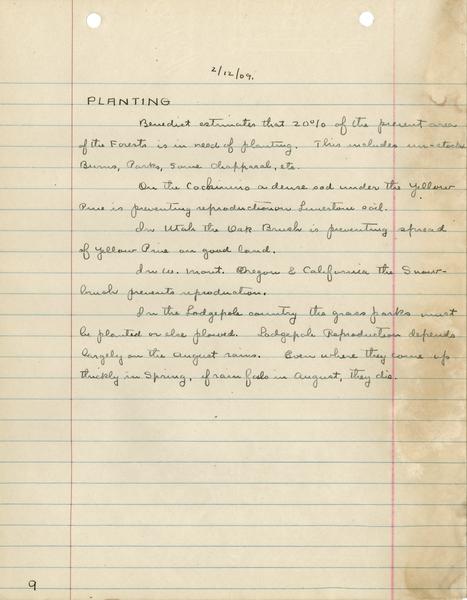 2/12/09.
PLANTING
Benedict estimates that 20% of the present area
of the Forests is in need of planting. This includes un-stocked
Burns, Parks, some chapparal, etc.
On the Coconino a dense sod under the Yellow
Pine is preventing reproduction on limestone soil.
In Utah the Oak Brush is preventing spread
of Yellow Pine on good land.
In W. Mont. Oregon & California the Snow-
brush prevents reproduction.
In the Lodgepole country the grass parks must
be planted or else plowed. Lodgepole Reproduction depends
largely on the August rains. Even where they come up
thickly in Spring, if rain fails in August, they die.
9